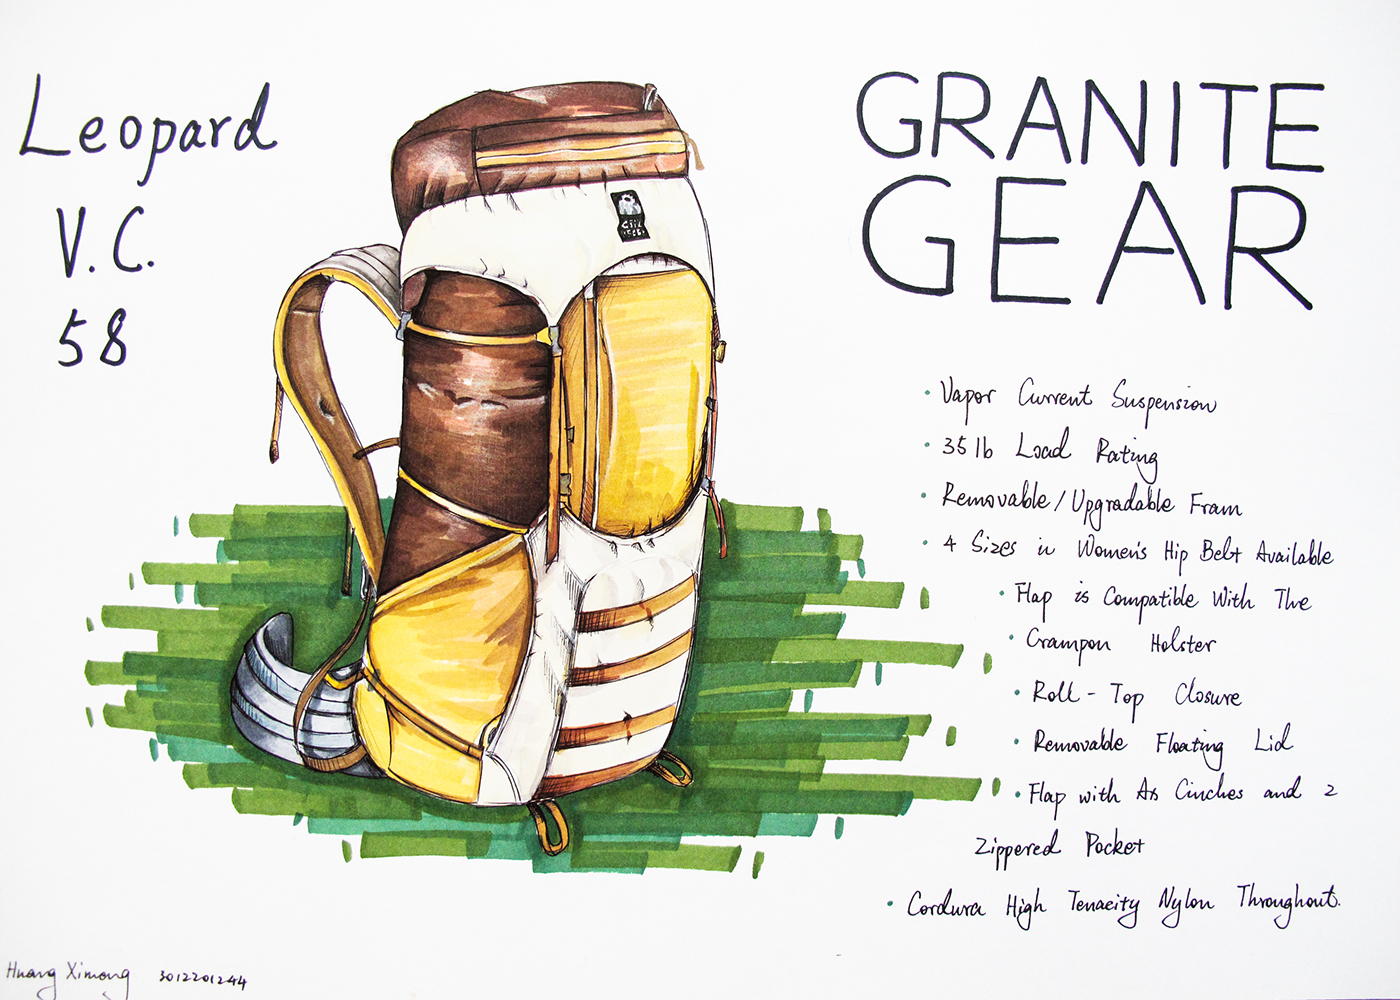 Leopard
V.C.
58
GRANITE
GEAR
• Vapor Current Suspension
• 35 lb Load Rating
• Removable/Upgradable Fram
• 4 Sizes in Women's Hip Belt Available
• Flap is Compatible With The
• Crampon Holster
• Roll-Top Closure
• Removable Floating Lid
• Flap with As Cinches and 2
Zippered Pocket
• Cordura High Tenacity Nylon Throughout.
Huang Ximong 3012201244